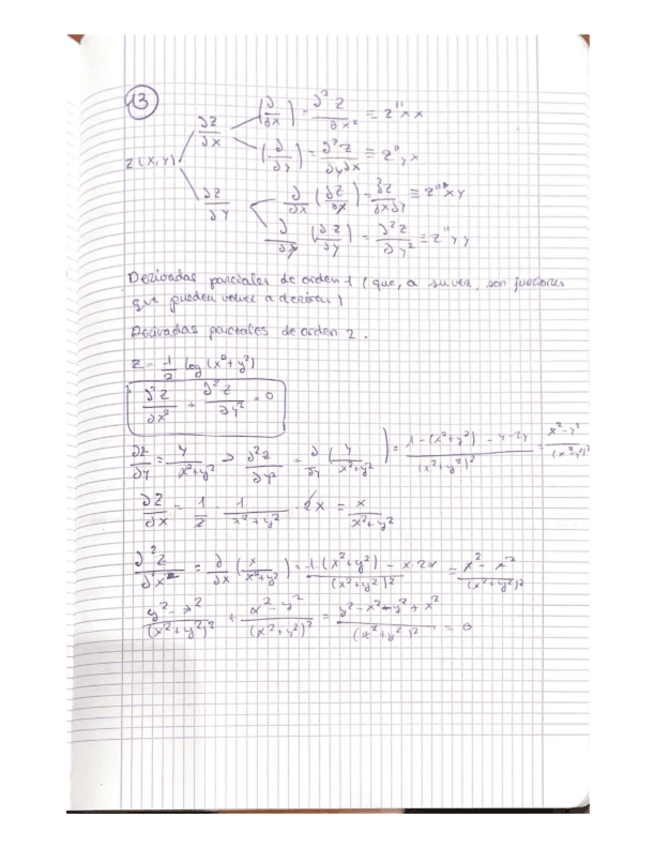 13
∂z/∂x (∂/∂x) = ∂²z/∂x² ≡ z''xx
z(x,y) (∂/∂y) = ∂²z/∂y∂x ≡ z''yx
∂z/∂y ∂/∂x (∂z/∂x) = ∂²z/∂x∂y ≡ z''xy
∂/∂y (∂z/∂y) = ∂²z/∂y² ≡ z''yy
Derivadas parciales de orden 1 (que, a su vez, son funciones
que pueden volver a derivar)
Derivadas parciales de orden 2.
z = 1/2 log (x²+y²)
∂²z/∂x² + ∂²z/∂y² = 0
∂z/∂y = y/x²+y² → ∂²z/∂y² = ∂/∂y (y/x²+y²) = 1-(x²+y²) - y-2y/(x²+y²)² = x²-y²/(x²+y²)²
∂z/∂x = 1/2 · 1/x²+y² · 2x = x/x²+y²
∂²z/∂x² = ∂/∂x (x/x²+y²) = 1·(x²+y²) - x 2x/(x²+y²)² = /(x²+y²)²
y²-x²/(x²+y²)² + x²-y²/(x²+y²)² = y²-x²-y²+x²/(x²+y²)² = 0